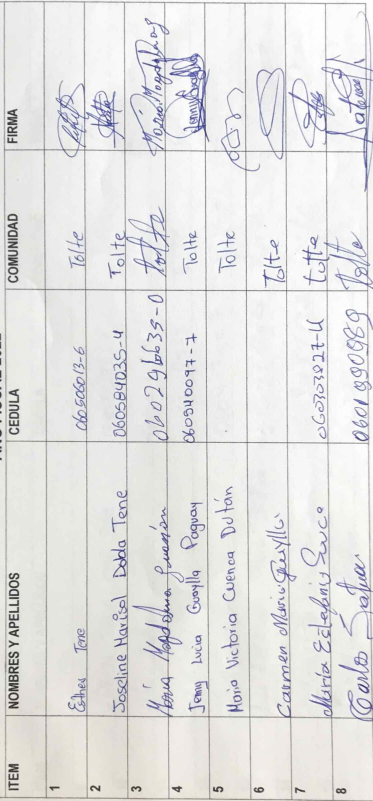 ITEM NOMBRES Y APELLIDOS CEDULA COMUNIDAD FIRMA
1 Esther Tene 060506013-6 Tolte
2 Joseline Marisol Dabla Tene 060584035-4 Tolte
3 María Magdalena Guamán 060296633-0 Tolte
4 Jenny Lucia Guaylla Paguay 060540097-7 Tolte
5 Maria Victoria Cuenca Dultán Tolte
6 Carmen Maria Guaylla Tolte
7 María Estefanis Sauce 060303827-4 totte
8 Carlos 0601890969 Tolte